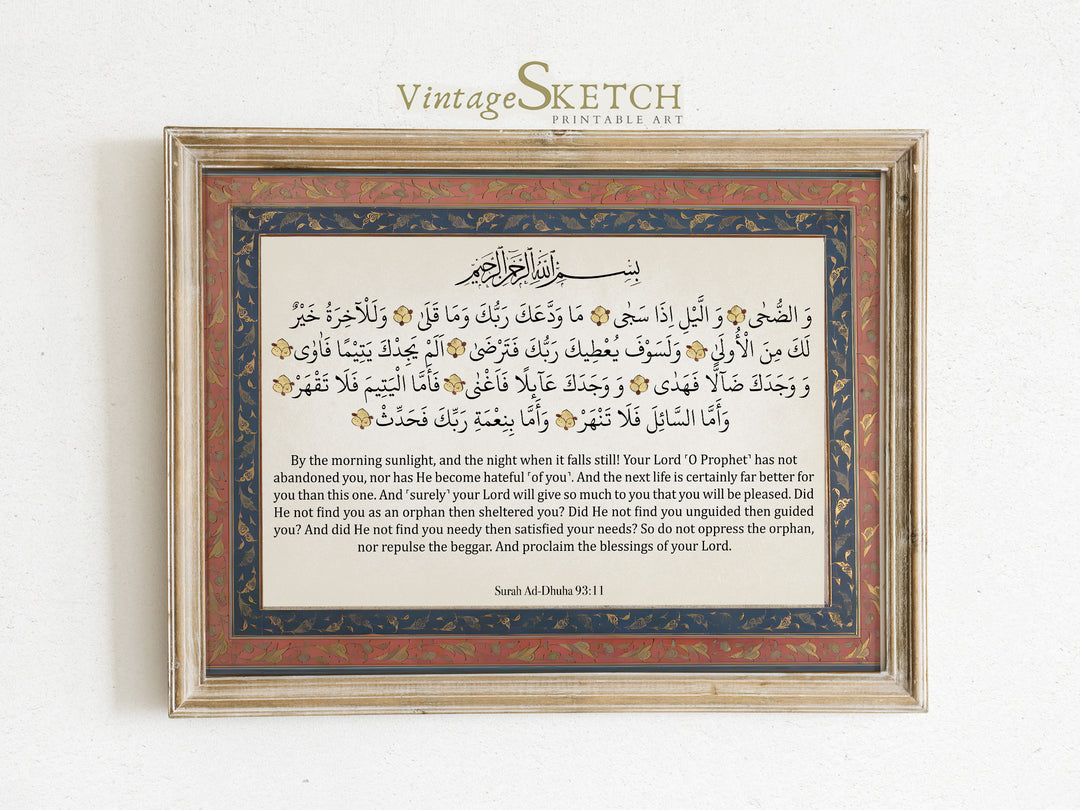 VintageSKETCH
PRINTABLE ART
بِسْمِ اللَّهِ الرَّحْمَٰنِ الرَّحِيمِ
وَ الضُّحٰى وَ الَّيْلِ اِذَا سَجٰى مَا وَدَّعَكَ رَبُّكَ وَمَا قَلَىٰ وَلَلْآخِرَةُ خَيْرٌ
لَكَ مِنَ الْأُولَىٰ وَلَسَوْفَ يُعْطِيكَ رَبُّكَ فَتَرْضَىٰ اَلَمْ يَجِدْكَ يَتِيْمًا فَاٰوٰى
وَ وَجَدَكَ ضَآلًّا فَهَدٰى وَ وَجَدَكَ عَآىِٕلًا فَاَغْنٰى فَأَمَّا الْيَتِيمَ فَلَا تَقْهَرْ
وَأَمَّا السَّائِلَ فَلَا تَنْهَرْ وَأَمَّا بِنِعْمَةِ رَبِّكَ فَحَدِّثْ
By the morning sunlight, and the night when it falls still! Your Lord ˹O Prophet˺ has not
abandoned you, nor has He become hateful ˹of you˺. And the next life is certainly far better for
you than this one. And ˹surely˺ your Lord will give so much to you that you will be pleased. Did
He not find you as an orphan then sheltered you? Did He not find you unguided then guided
you? And did He not find you needy then satisfied your needs? So do not oppress the orphan,
nor repulse the beggar. And proclaim the blessings of your Lord.
Surah Ad-Dhuha 93:11